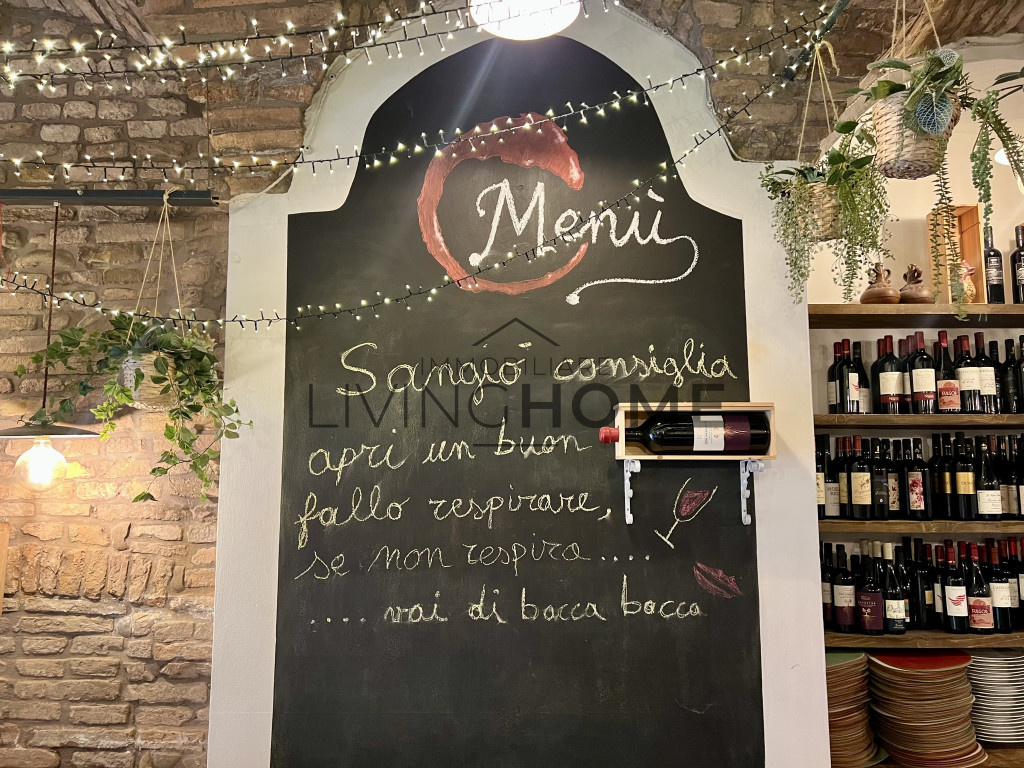 Menù
Sangiò consiglia
IMMOBILIARE
LIVINGHOME
apri un buon
fallo respirare,
se non respira....
.... vai di bocca bocca